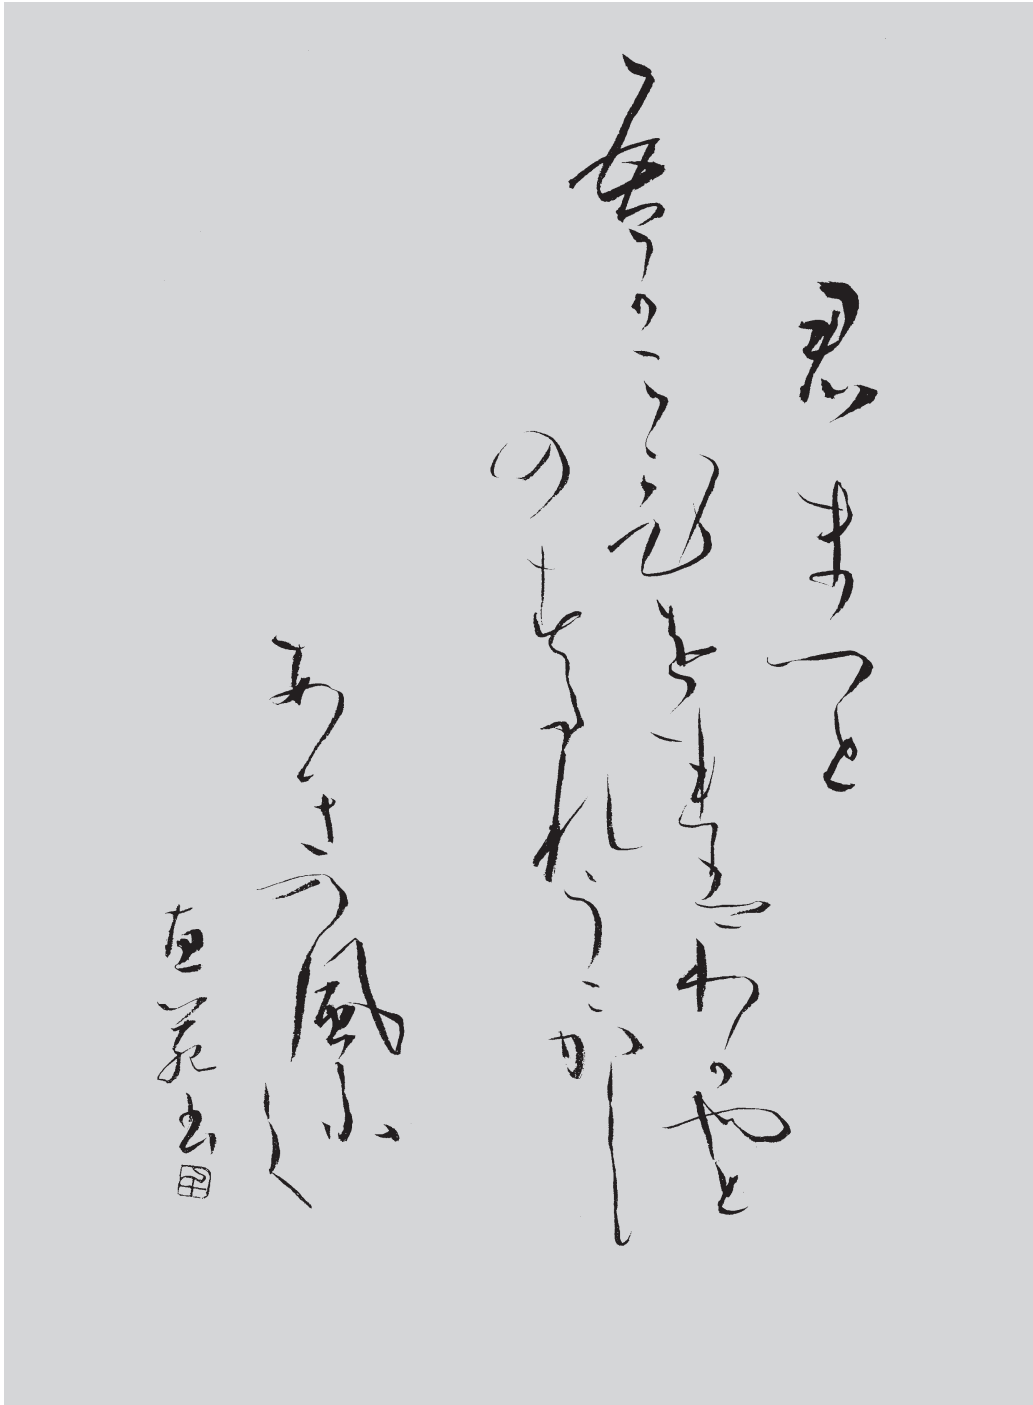 君まつと
吾かこひをれはわかやと
のすたれうこかし
あきの風ふく
直苑書